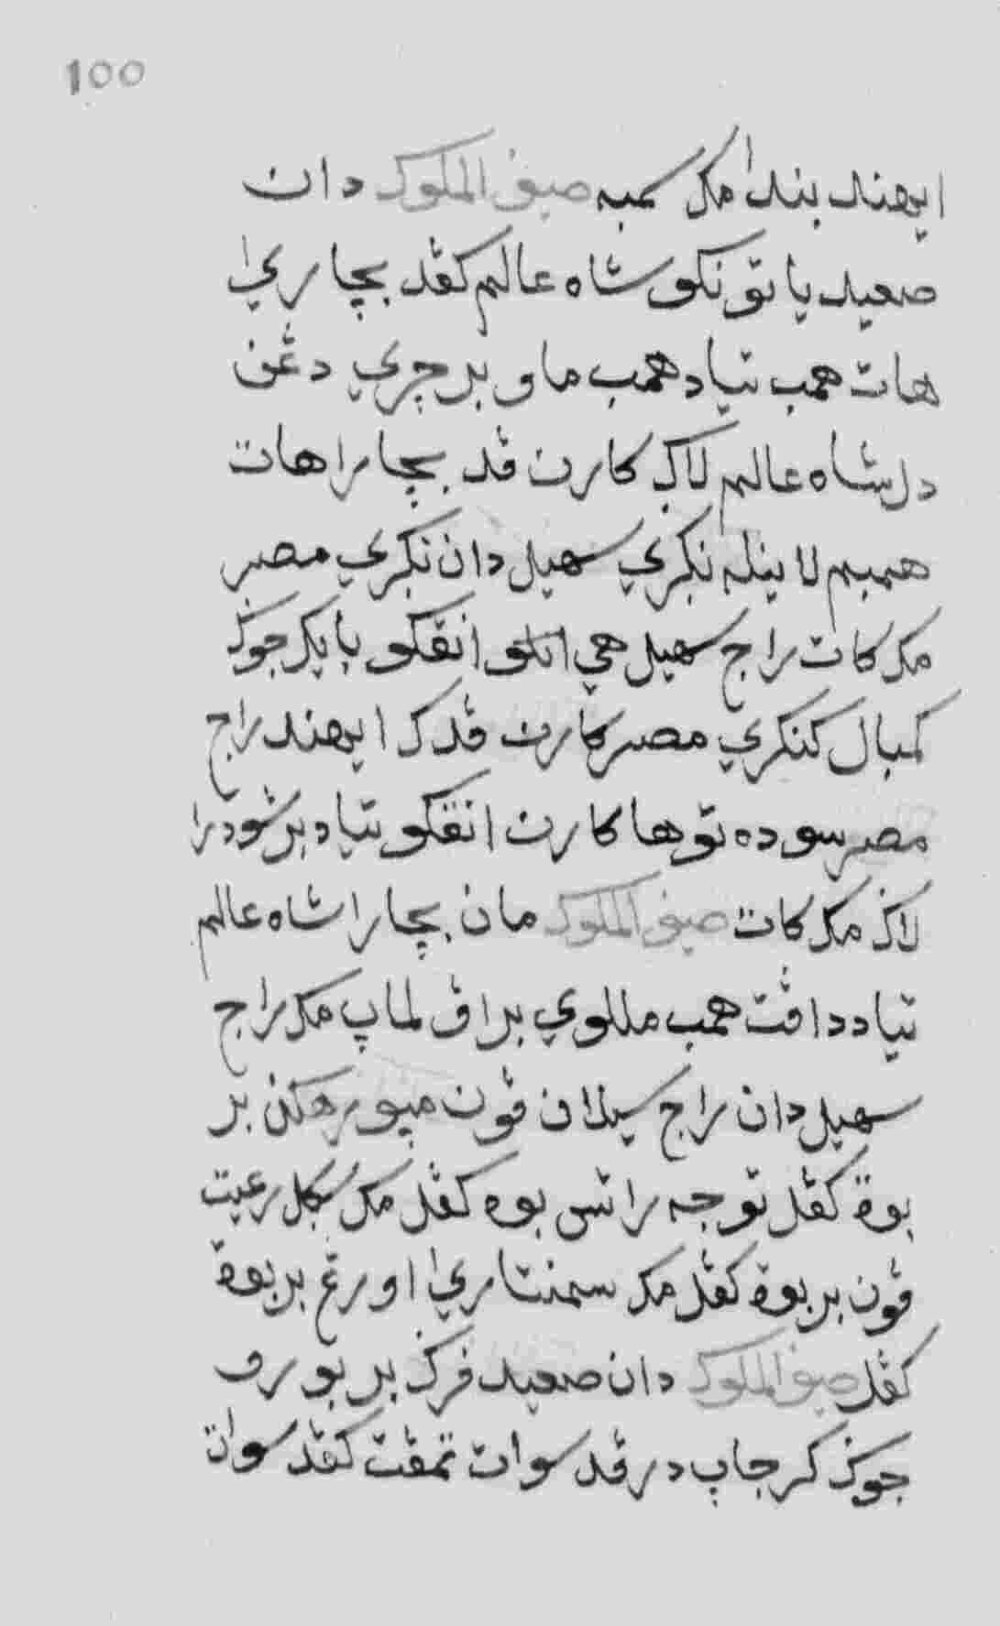 100
ايهندا بندا مک سمبه صيف الملوک دان
صعيد ياتو تنکو شاه عالم کڤد بچاراي
هات همب تياد همب ماو برچري دڠن
دل شاه عالم لاݢ کارن ڤد بچارا هات
همبم لاينله نݢري سهيل دان نݢري مصر
مک کات راج سهيل هي انقکو بايک جوݢ
کمبال کنݢري مصر کارن ڤدک ايهند راج
مصر سوده توها کارن انقکو تياد برسودرا
لاݢ مک کات صيف الملوک مان بچارا شاه عالم
تياد داڤت همب مللوي براڤ لماپ مک راج
سهيل دان راج سيلان ڤون مپورهکن بر
بوة کڤل توجه راتس بوه کڤل مک سݢل رعيت
ڤون بربوة کڤل مک سمنتاراي اورڠ بربوة
کڤل صيف الملوک دان صعيد ڤرݢ بربورو
جوݢ کرجاپ درڤد سوات تمڤت کڤد سوات